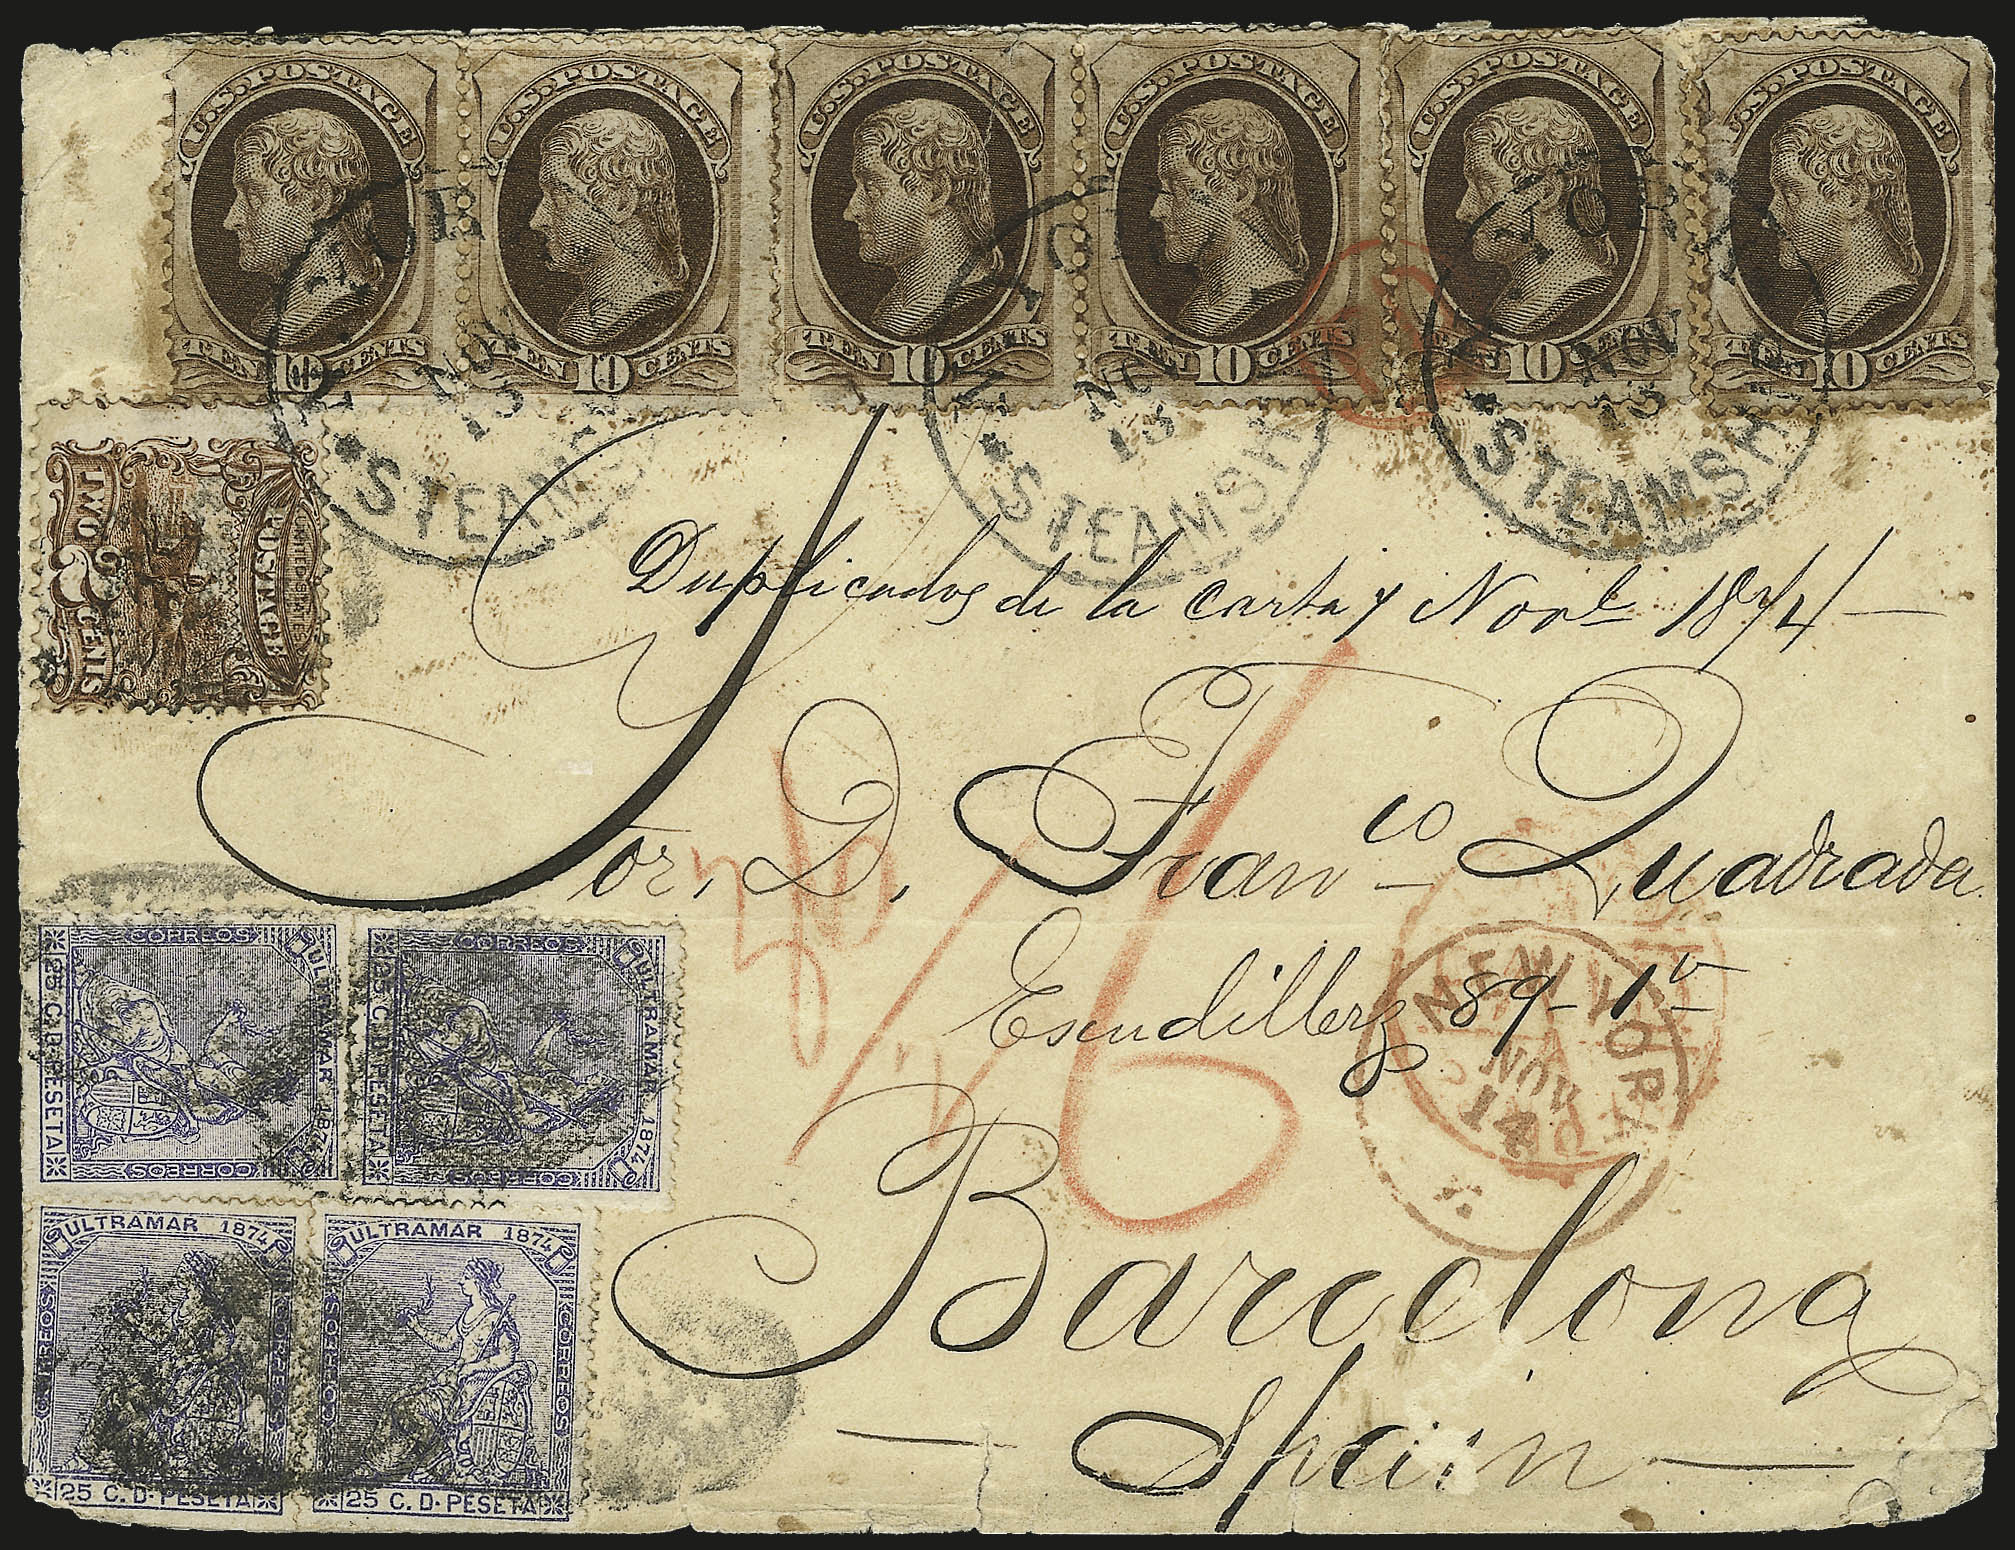 U.S. POSTAGE U.S. POSTAGE U.S. POSTAGE U.S. POSTAGE U.S. POSTAGE U.S. POSTAGE
TEN 10 CENTS TEN 10 CENTS TEN 10 CENTS TEN 10 CENTS TEN 10 CENTS TEN 10 CENTS
NOV 13 STEAMSH
NOV 13 STEAMSH
NOV 13 STEAMSH
UNITED STATES
POSTAGE
TWO 2 CENTS
Duplicados de la carta 7 Nov.e 1874
Sor. D. Franco Quadrada
Escudillerz 89-1o
Barcelona
Spain
NEW YORK
NOV
14
ULTRAMAR 1874
CORREOS CORREOS
25 C. D. PESETA
ULTRAMAR 1874
CORREOS CORREOS
25 C. D. PESETA
ULTRAMAR 1874
CORREOS CORREOS
25 C. D. PESETA
ULTRAMAR 1874
CORREOS CORREOS
25 C. D. PESETA